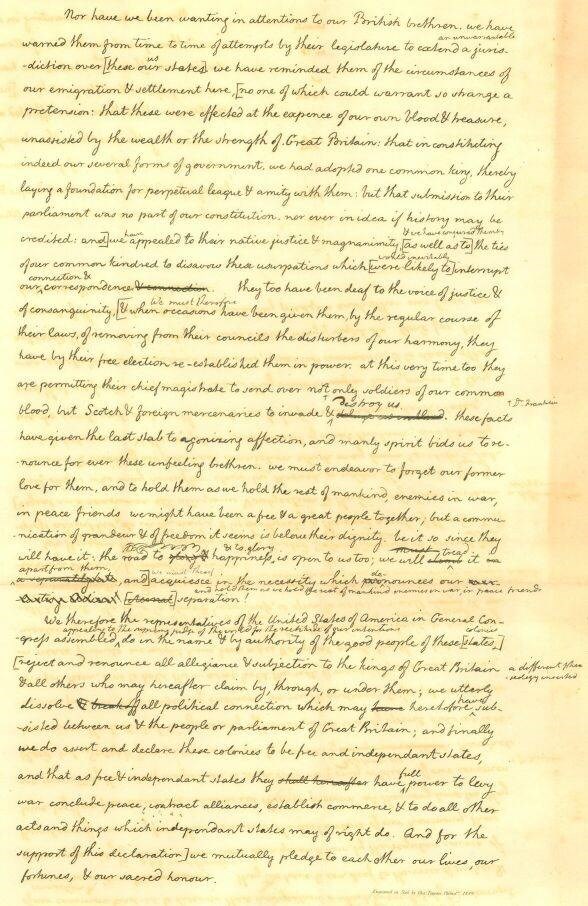 Nor have we been wanting in attentions to our British brethren. we have
an unwarrantable
warned them from time to time of attempts by their legislature to extend a juris-
us
-diction over [these our states]. we have reminded them of the circumstances of
our emigration & settlement here, [no one of which could warrant so strange a
pretension: that these were effected at the expence of our own blood & treasure,
unassisted by the wealth or the strength of Great Britain: that in constituting
indeed our several forms of government, we had adopted one common king, thereby
laying a foundation for perpetual league & amity with them: but that submission to their
parliament was no part of our constitution, nor ever in idea if history may be
have & we have conjured them by
credited: and] we appealed to their native justice & magnanimity, [as well as to] the ties
would inevitably
of our common kindred to disavow these usurpations which [were likely to] interrupt
connection &
our correspondence & connection. they too have been deaf to the voice of justice &
we must therefore
of consanguinity, [& when occasions have been given them, by the regular course of
their laws, of removing from their councils the disturbers of our harmony, they
have by their free election re-established them in power. at this very time too they
are permitting their chief magistrate to send over not only soldiers of our common
destroy us + Dr. Franklin
blood, but Scotch & foreign mercenaries to invade & these facts
have given the last stab to agonizing affection, and manly spirit bids us to re-
nounce for ever these unfeeling brethren. we must endeavor to forget our former
love for them, and to hold them as we hold the rest of mankind, enemies in war,
in peace friends we might have been a free & a great people together; but a commu-
-nication of grandeur & of freedom it seems is below their dignity. be it so since they
& to glory must tread
will have it: the road to happiness, is open to us too; we will it
apart from them,
and] acquiesce in the necessity which denounces our
and hold them as we hold the rest of mankind enemies in war, in peace friends
[eternal] separation!
We therefore the representatives of the United States of America in General Con-
appealing to the supreme judge of the world for the rectitude of our intentions colonies
-gress assembled, do in the name & by authority of the good people of these [states,]
[reject and renounce all allegiance & subjection to the kings of Great Britain
a different phra-
-seology inserted
& all others who may hereafter claim by, through, or under them; we utterly
have
dissolve & break off all political connection which may have heretofore sub-
-sisted between us & the people or parliament of Great Britain; and finally
we do assert and declare these colonies to be free and independant states,
full
and that as free & independant states they shall hereafter have power to levy
war conclude peace, contract alliances, establish commerce, & to do all other
acts and things which independant states may of right do. And for the
support of this declaration] we mutually pledge to each other our lives, our
fortunes, & our sacred honour.